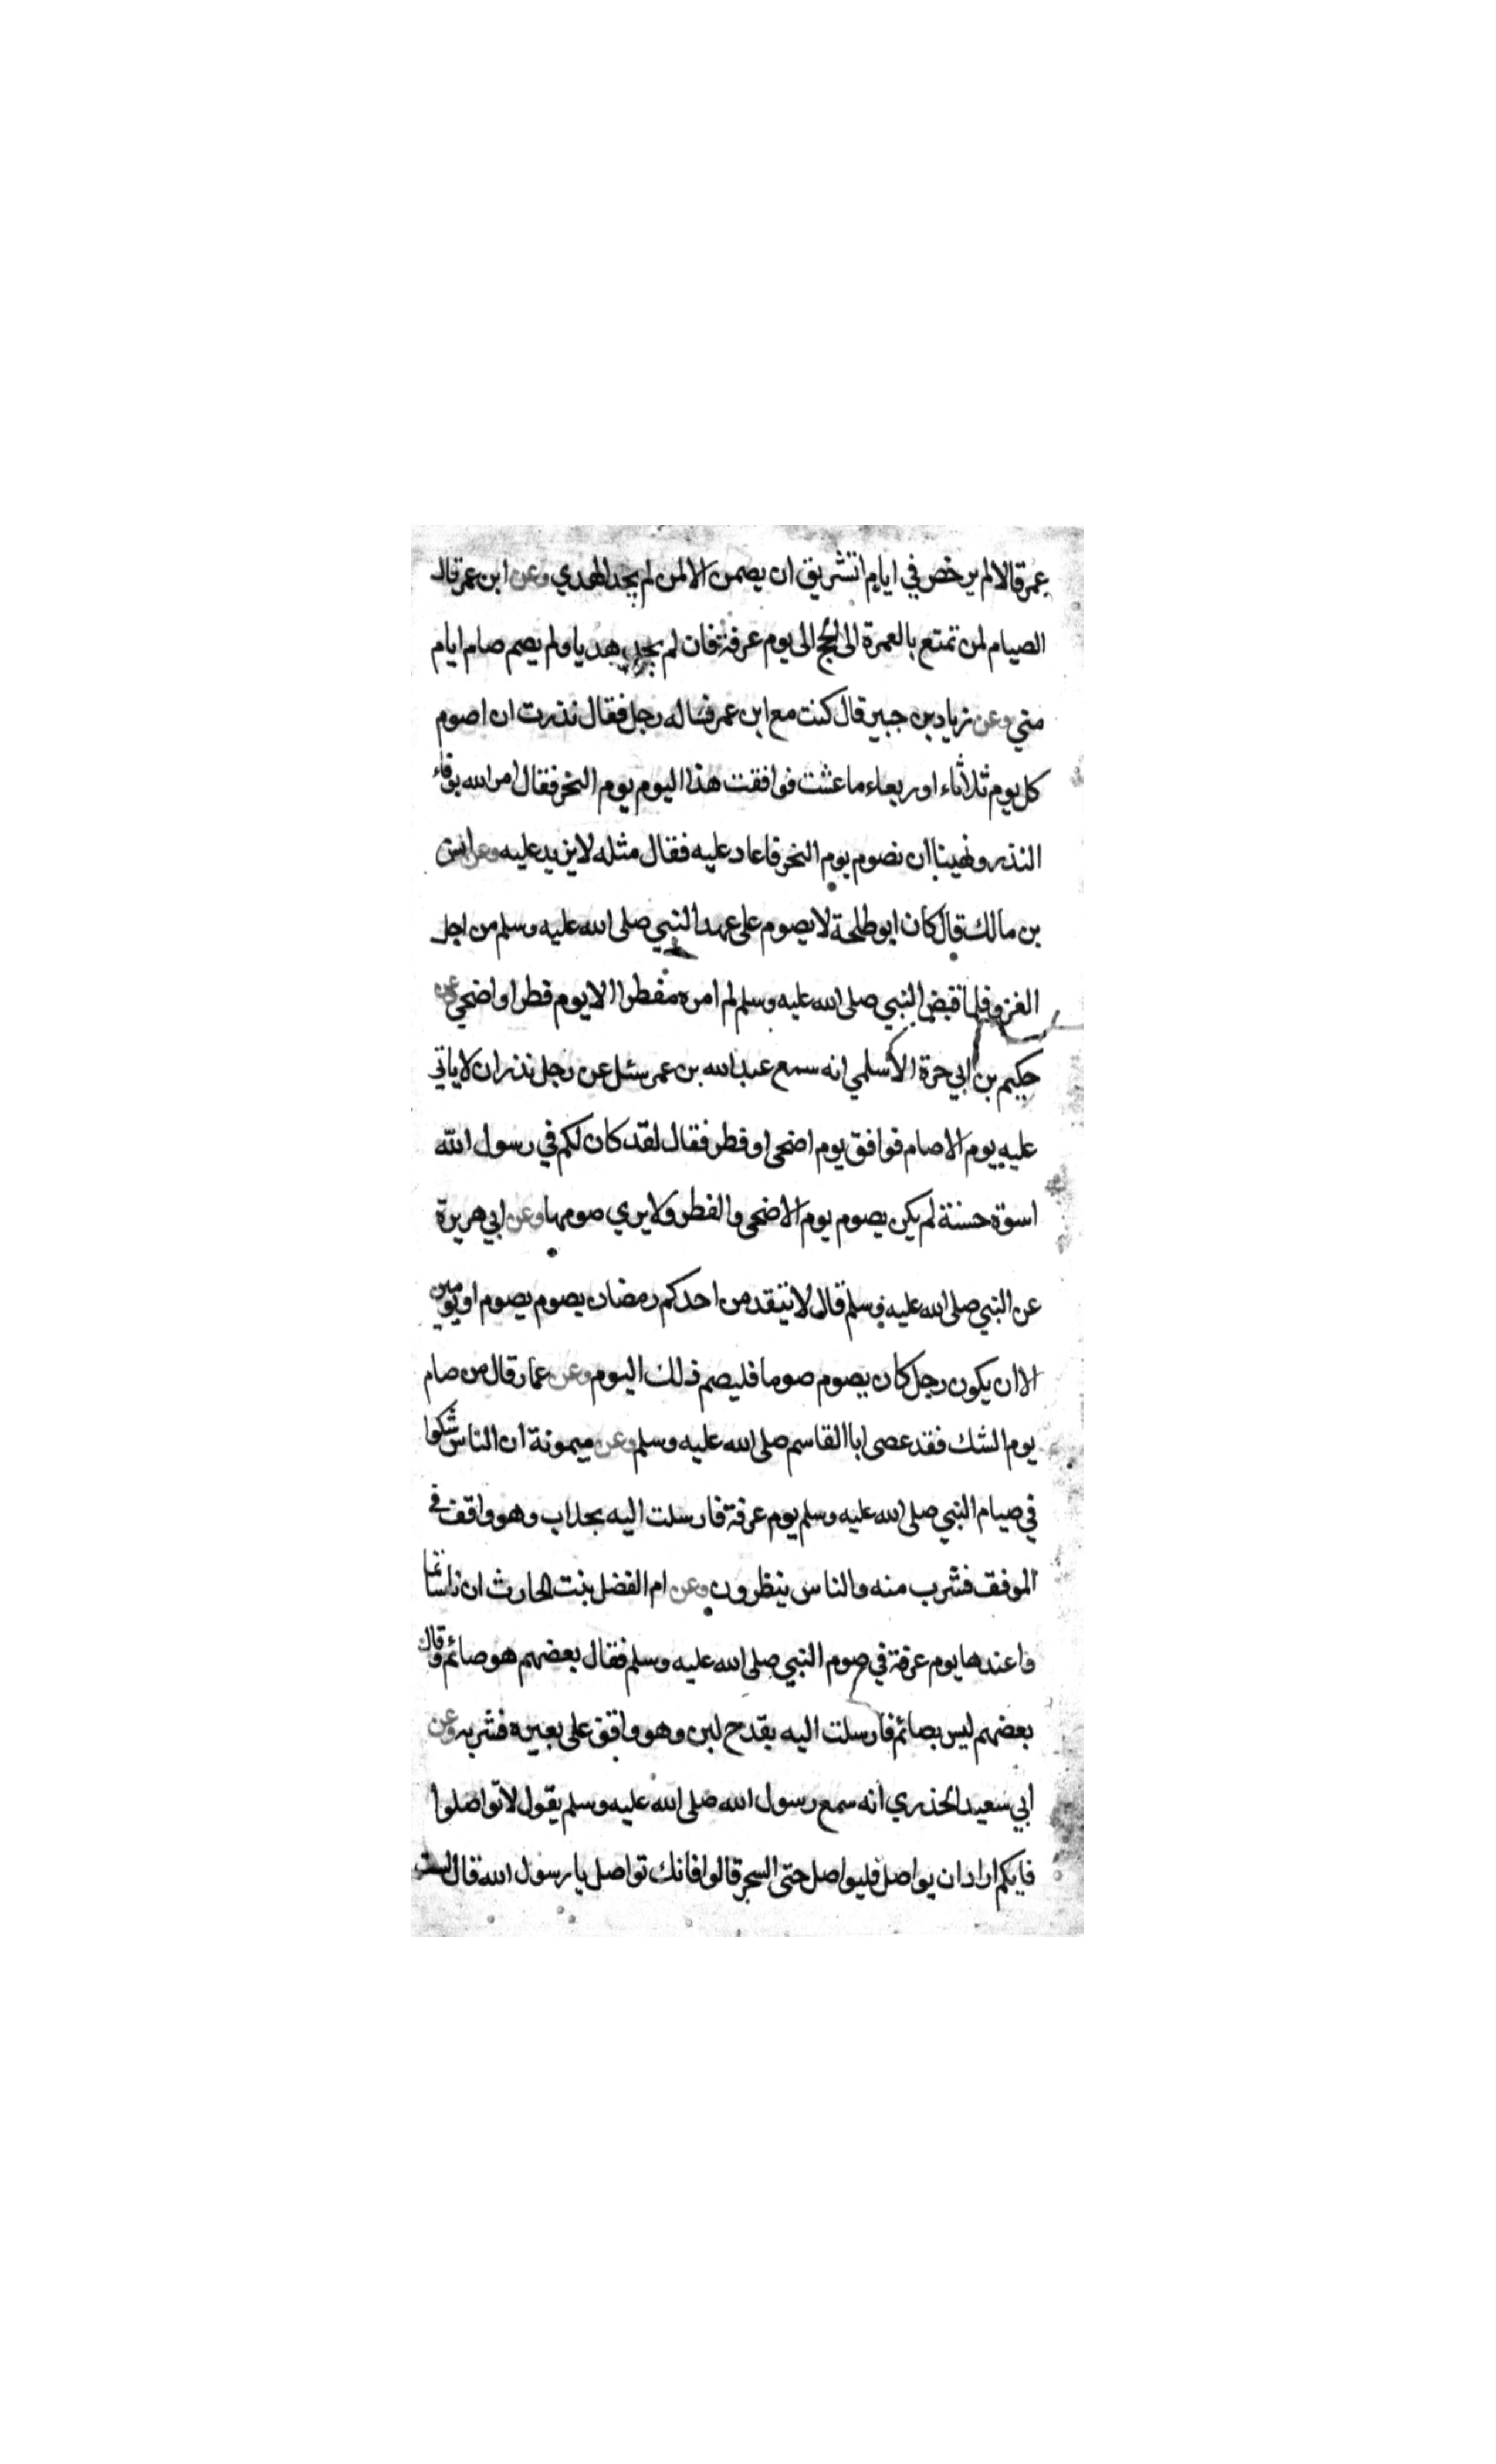 عمر قالا لم يرخص في ايام التشريق ان يصمن الا لمن لم يجد الهدي وعن ابن عمر قال
الصيام لمن تمتع بالعمرة الى الحج الى يوم عرفة فان لم يجد هديا ولم يصم صام ايام
مني وعن زياد بن جبير قال كنت مع ابن عمر فساله رجل فقال نذرت ان اصوم
كل يوم ثلاثاء او ربعاء ما عشت فوافقت هذا اليوم يوم النحر فقال امر الله بوفاء
النذر ونهينا ان نصوم يوم النحر فاعاد عليه فقال مثله لا يزيد عليه وعن انس
بن مالك قال كان ابو طلحة لا يصوم على عهد النبي صلى الله عليه وسلم من اجل
الغزو فلما قبض النبي صلى الله عليه وسلم لم اره مفطرا الا يوم فطر او اضحي وعن
حكيم بن ابي حرة الاسلمي انه سمع عبد الله بن عمر سئل عن رجل نذر ان لا ياتي
عليه يوم الا صام فوافق يوم اضحى او فطر فقال لقد كان لكم في رسول الله
اسوة حسنة لم يكن يصوم يوم الاضحى والفطر ولا يرى صومها وعن ابي هريرة
عن النبي صلى الله عليه وسلم قال لا يتقدمن احدكم رمضان يصوم يصوم او يومين
الا ان يكون رجل كان يصوم صوما فليصم ذلك اليوم وعن عمار قال من صام
يوم الشك فقد عصى ابا القاسم صلى الله عليه وسلم وعن ميمونة ان الناس شكوا
في صيام النبي صلى الله عليه وسلم يوم عرفة فارسلت اليه بحلاب وهو واقف في
الموقف فشرب منه والناس ينظرون وعن ام الفضل بنت الحارث ان ناسا تما
وا عندها يوم عرفة في صوم النبي صلى الله عليه وسلم فقال بعضهم هو صائم وقال
بعضهم ليس بصائم فارسلت اليه بقدح لبن وهو واقف على بعيره فشربه وعن
ابي سعيد الخذري انه سمع رسول الله صلى الله عليه وسلم يقول لا تواصلوا
فايكم اراد ان يواصل فليواصل حتى السحر قالوا فانك تواصل يا رسول الله قال لست